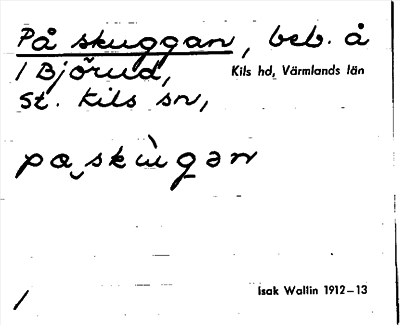 På skuggan, beb. å
1 Björud, Kils hd, Värmlands län
St. Kils sn,
pa skùgan
Isak Wallin 1912–13
/